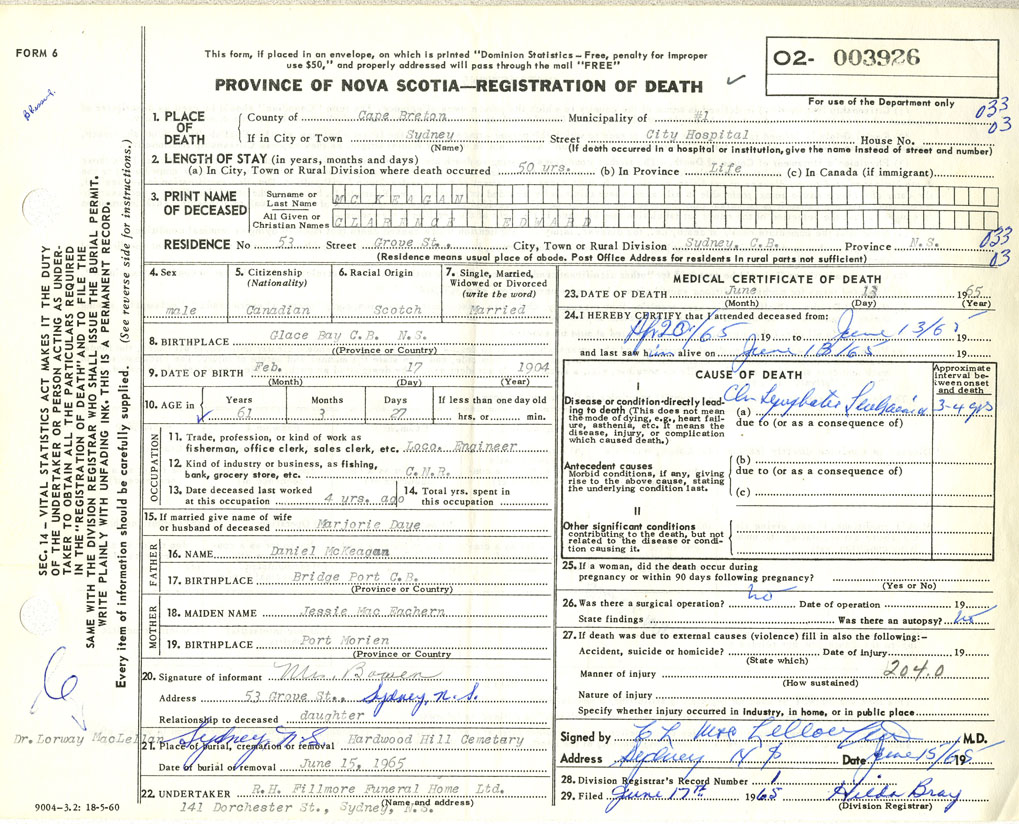 FORM 6
This form, if placed in an envelope, on which is printed "Dominion Statistics – Free, penalty for improper
use $50," and properly addressed will pass through the mail "FREE"
PROVINCE OF NOVA SCOTIA—REGISTRATION OF DEATH
02- 003926
For use of the Department only
033
03
1. PLACE OF DEATH County of Cape Breton Municipality of #1
If in City or Town Sydney Street City Hospital House No.
(Name) (If death occurred in a hospital or institution, give the name instead of street and number)
2. LENGTH OF STAY (in years, months and days)
(a) In City, Town or Rural Division where death occurred 50 yrs. (b) In Province Life (c) In Canada (if immigrant)
3. PRINT NAME OF DECEASED Surname or Last Name MC KEAGAN
All Given or Christian Names CLARENCE EDWARD
RESIDENCE No 53 Street Grove St., City, Town or Rural Division Sydney, C.B. Province N.S.
(Residence means usual place of abode. Post Office Address for residents in rural parts not sufficient)
033
03
4. Sex male
5. Citizenship (Nationality) Canadian
6. Racial Origin Scotch
7. Single, Married, Widowed or Divorced (write the word) Married
8. BIRTHPLACE Glace Bay C.B. N.S.
(Province or Country)
9. DATE OF BIRTH Feb. 17 1904
(Month) (Day) (Year)
10. AGE in Years Months Days If less than one day old
61 3 27 hrs. or min.
OCCUPATION
11. Trade, profession, or kind of work as
fisherman, office clerk, sales clerk, etc. Loco. Engineer
12. Kind of industry or business, as fishing,
bank, grocery store, etc. C.N.R.
13. Date deceased last worked at this occupation 4 yrs. ago
14. Total yrs. spent in this occupation
15. If married give name of wife
or husband of deceased Marjorie Daye
FATHER
16. NAME Daniel McKeagan
17. BIRTHPLACE Bridge Port C.B.
(Province or Country)
MOTHER
18. MAIDEN NAME Jessie Mac Eachern
19. BIRTHPLACE Port Morien
(Province or Country
20. Signature of informant Mrs. Bowen
Address 53 Grove St., Sydney, N.S.
Relationship to deceased daughter
Dr. Lorway MacLellan Sydney N S
21. Place of burial, cremation or removal Hardwood Hill Cemetary
Date of burial or removal June 15, 1965
22. UNDERTAKER R.H. Fillmore Funeral Home Ltd.
(Name and address)
141 Dorchester St., Sydney, N.S.
9004-3.2: 18-5-60
MEDICAL CERTIFICATE OF DEATH
23. DATE OF DEATH June 13 1965
(Month) (Day) (Year)
24. I HEREBY CERTIFY that I attended deceased from:
Apr 20/65 19 to June 13/65
and last saw him alive on June 13/65 19
CAUSE OF DEATH
Approximate interval between onset and death
I
Disease or condition directly leading to death (This does not mean the mode of dying, e.g., heart failure, asthenia, etc. It means the disease, injury, or complication which caused death.)
(a) Chr Lymphatic Leukaemia 3-4 yrs
due to (or as a consequence of)
Antecedent causes
Morbid conditions, if any, giving rise to the above cause, stating the underlying condition last.
(b)
due to (or as a consequence of)
(c)
II
Other significant conditions
contributing to the death, but not related to the disease or condition causing it.
25. If a woman, did the death occur during
pregnancy or within 90 days following pregnancy?
(Yes or No)
26. Was there a surgical operation? no Date of operation 19
State findings Was there an autopsy? no
27. If death was due to external causes (violence) fill in also the following:–
Accident, suicide or homicide? Date of injury 19
(State which)
Manner of injury 204.0
(How sustained)
Nature of injury
Specify whether injury occurred in industry, in home, or in public place
Signed by M.D.
Address Sydney N S Date June 15/65 19
28. Division Registrar's Record Number 1
29. Filed June 17th 1965 Hilda Bray
(Division Registrar)
SEC. 14 – VITAL STATISTICS ACT MAKES IT THE DUTY
OF THE UNDERTAKER OR PERSON ACTING AS UNDER-
TAKER TO OBTAIN ALL THE PARTICULARS REQUIRED
IN THE "REGISTRATION OF DEATH" AND TO FILE THE
SAME WITH THE DIVISION REGISTRAR WHO SHALL ISSUE THE BURIAL PERMIT.
WRITE PLAINLY WITH UNFADING INK. THIS IS A PERMANENT RECORD.
Every item of information should be carefully supplied. (See reverse side for instructions.)
6